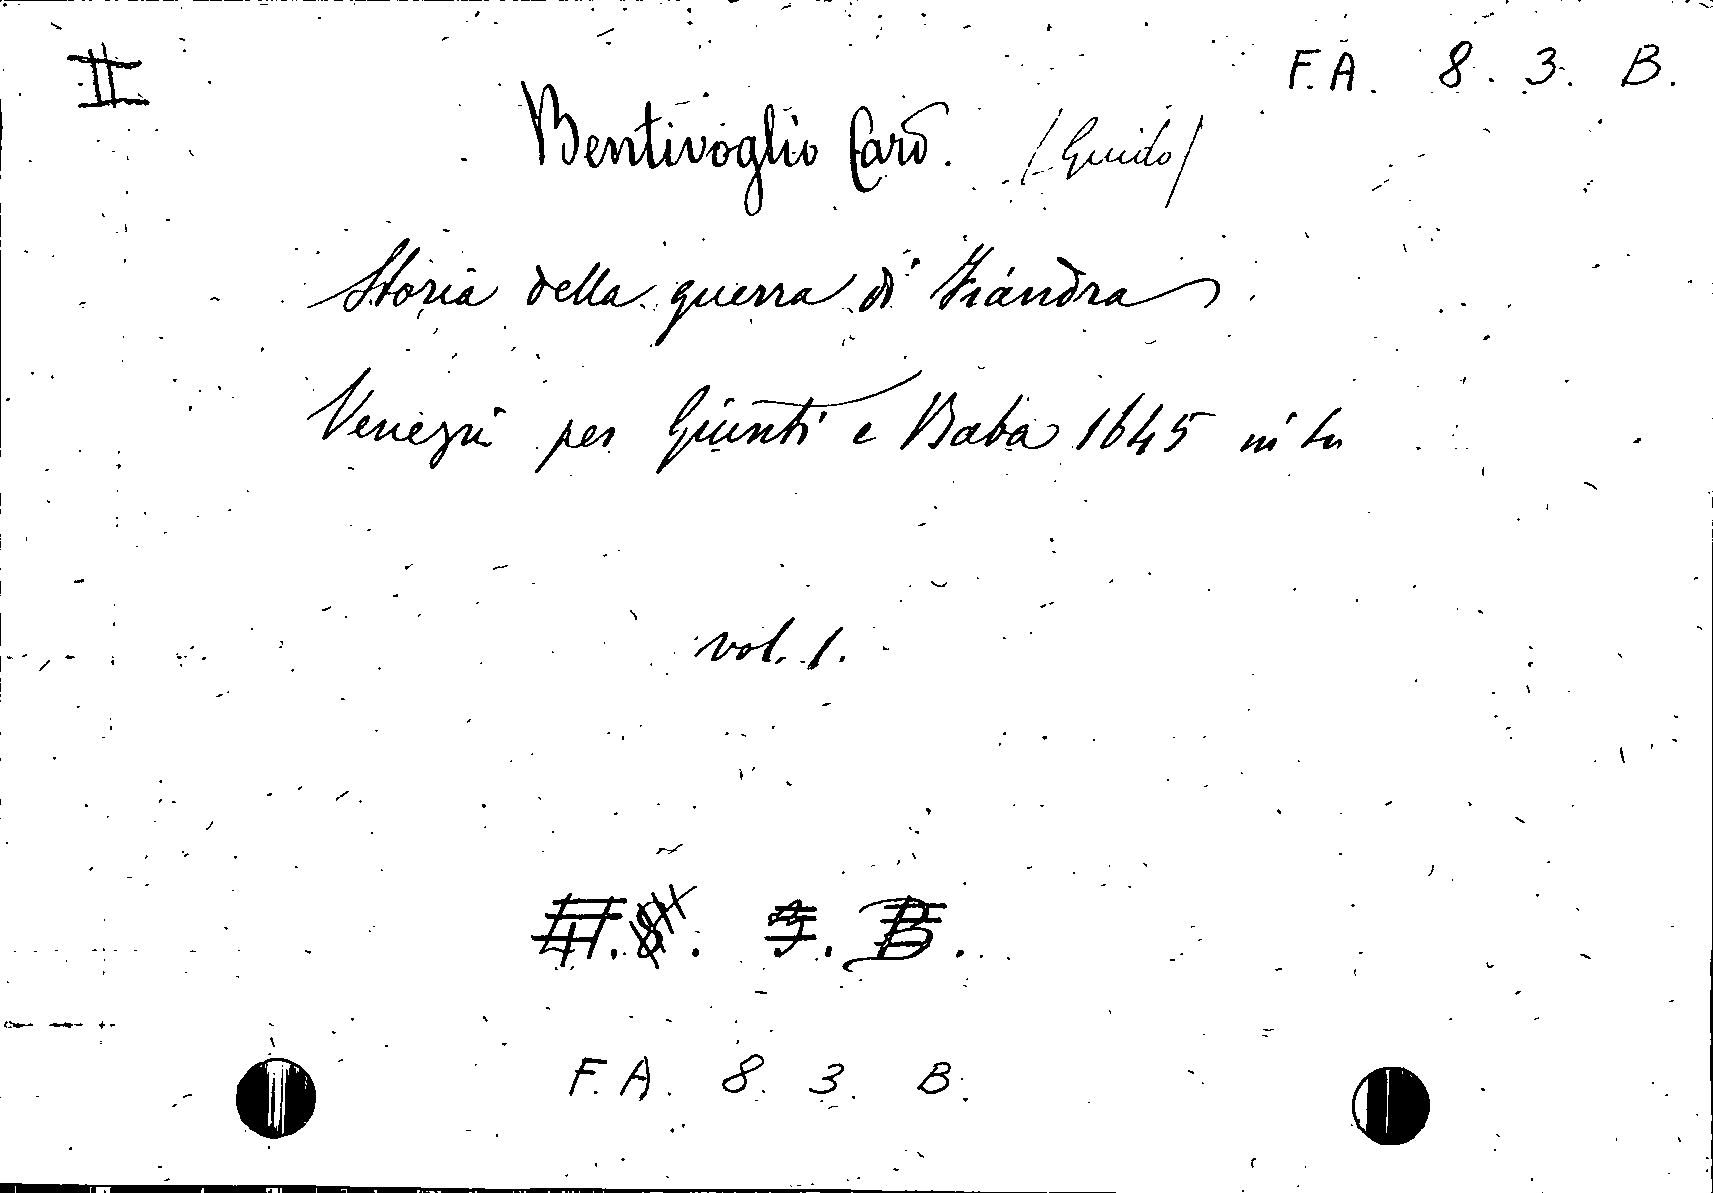 II F.A. 8. 3. B.
Bentivoglio Card. (Guido)
Storia della guerra di Fiandra
Venezia per Giunti e Baba 1645 in
vol. 1.
F.A. 8. 3. B.